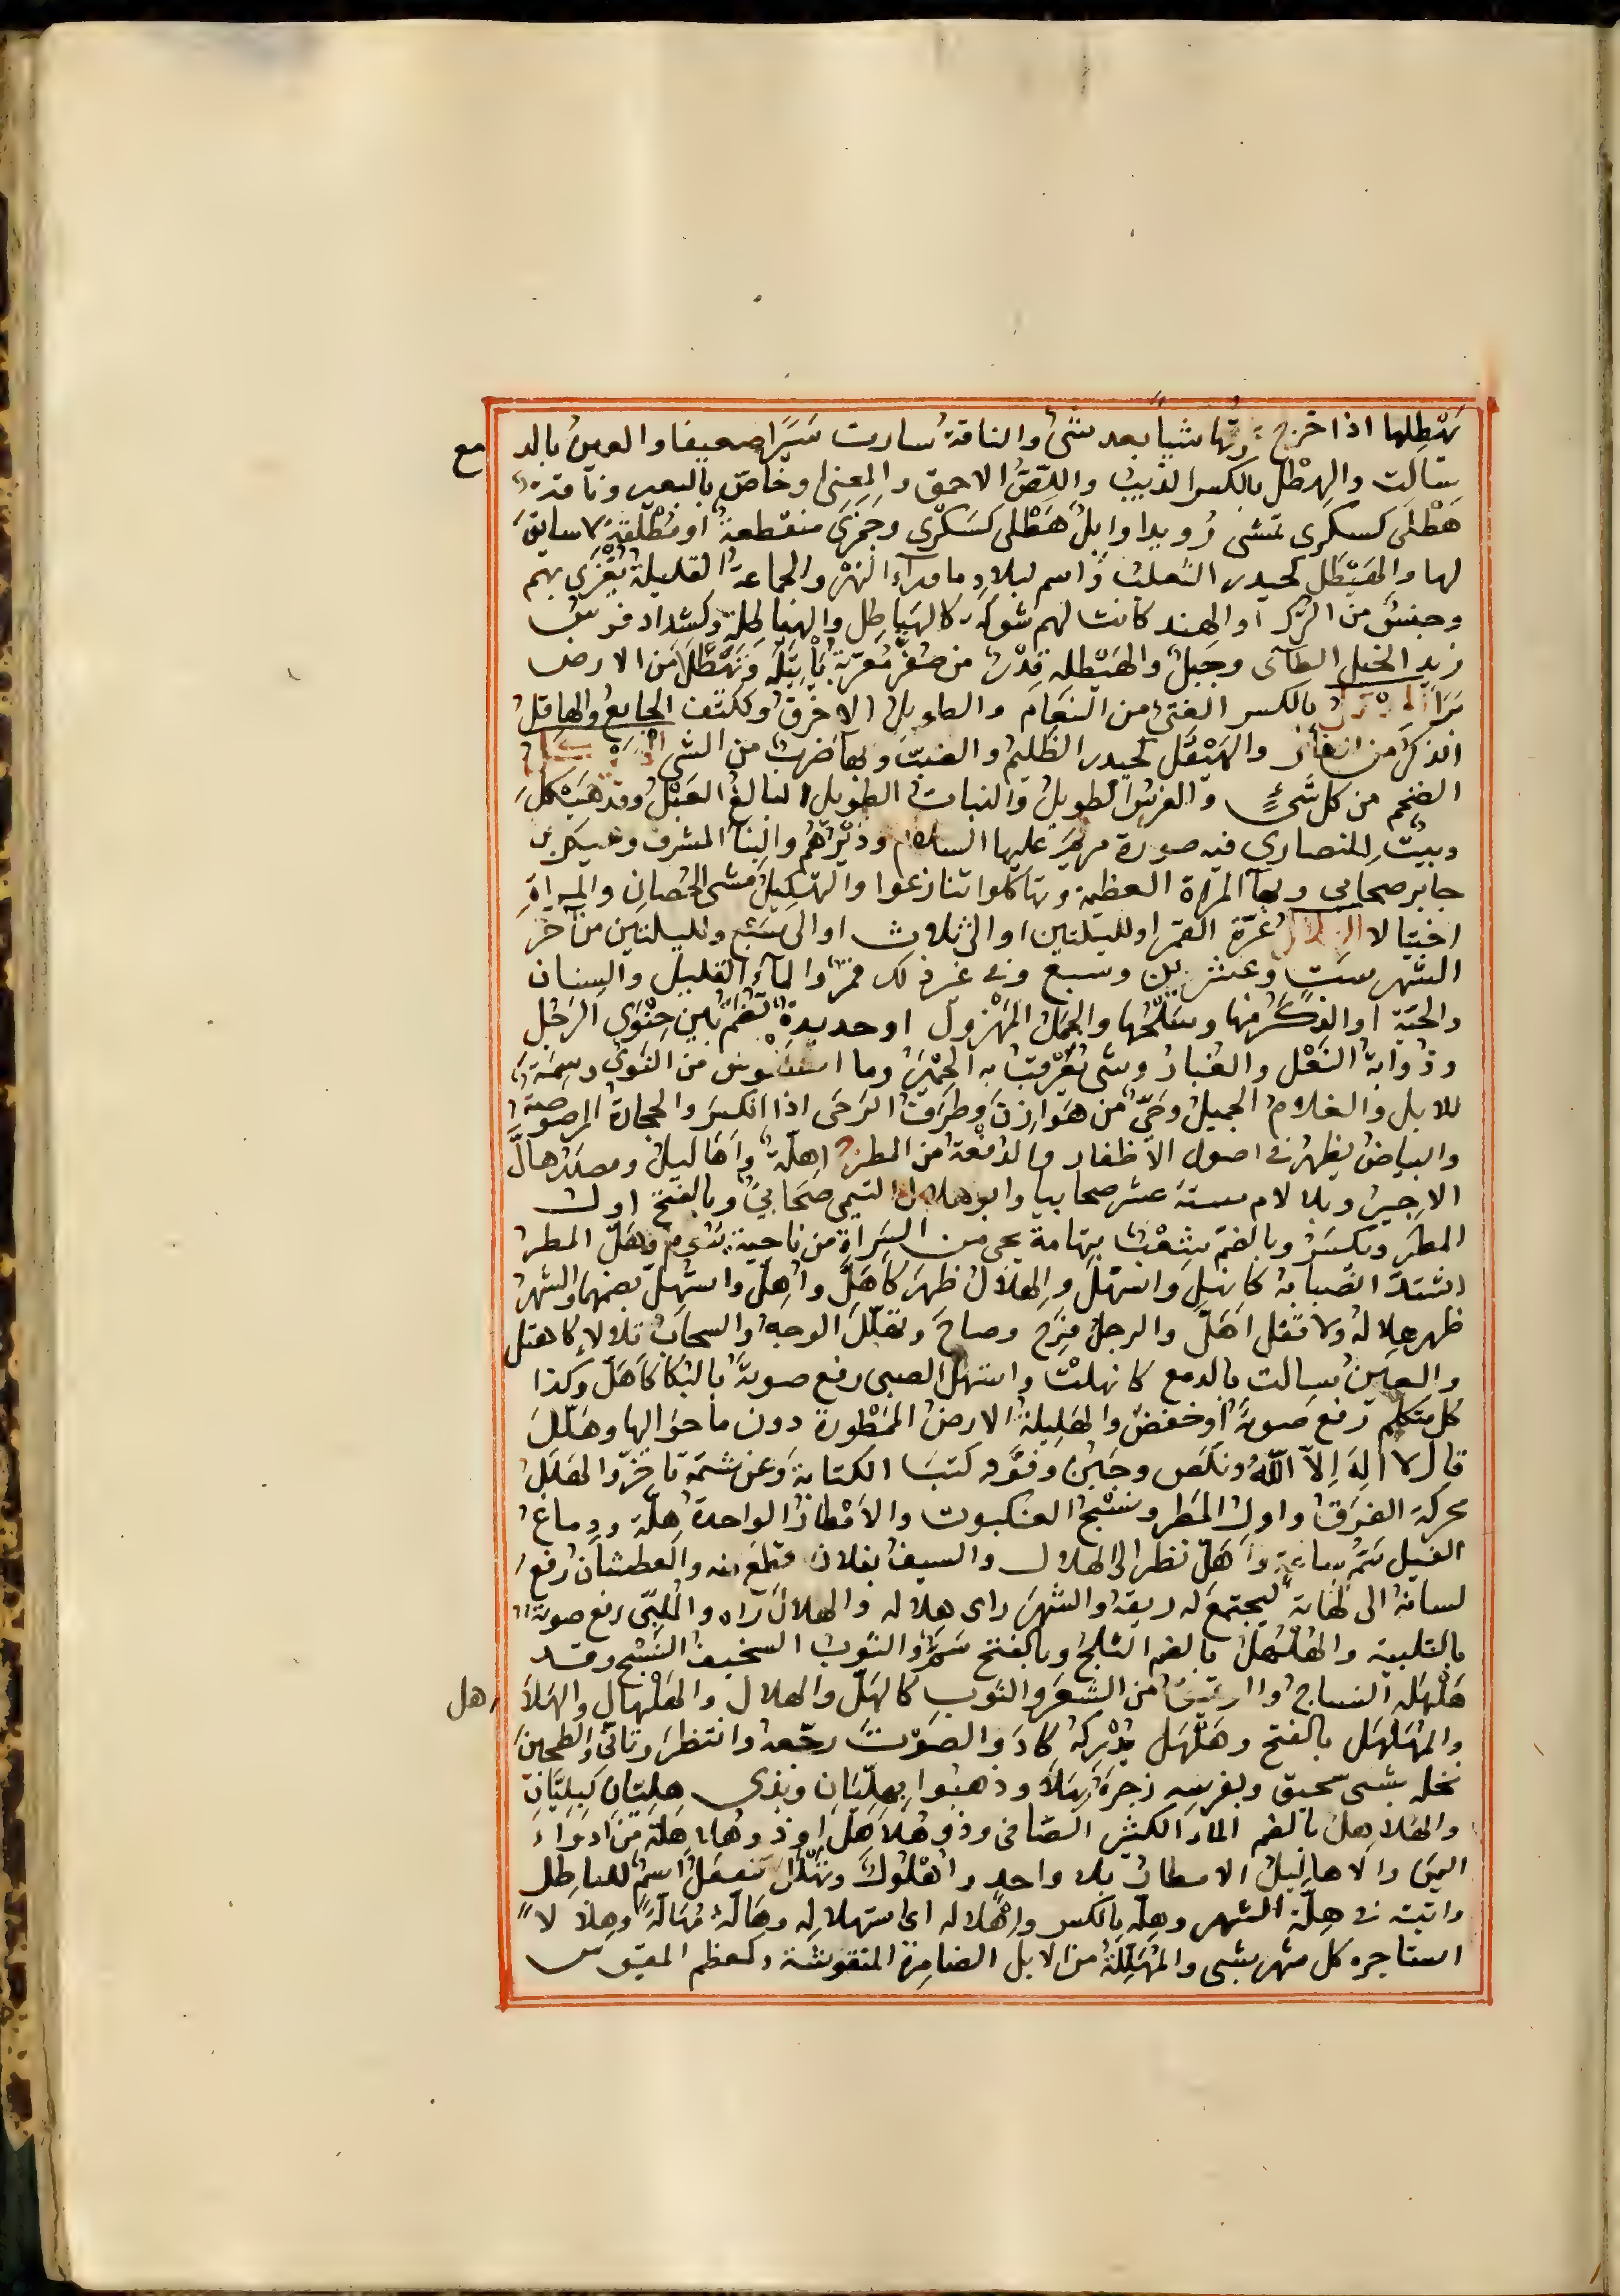 يَهْطِلها اذا خرج رقها شيأ بعد شئ والناقة سارت سَيْرًا ضعيفا والعين بالد مع
سالت والهِطْل بالكسر الذيب واللّص الاحمق والمعنى او خاص بالبعير وناقة
هَطْلَى كسكرى تمشى رُويدا وابل هَطْلى كسَكْرى وجَمَزَى منقطعة او مُطْلَقَة لا سايق
لها والهَيْطَل كحيدر الثعلب واسم لبلاد ما ورآء النهر والجماعة القليلة يُغْزَى بهم
وجنس من الترك او الهند كانت لهم شوكة كالهَيَاطِل والهياطِلة وكشداد فرس
زيد الخيل الطآى وجَبَل والهَيْطَلة قِدْر من صُفْر مُعَرّبة بَاتِيلَه وتَهَطْلَا من الارض
بَرَا الهِقْل بالكسر الفتى من النعام والطويل الاخرق وككتف الجايع والهاقل
الذكر من الفار والهَيْقل كحيدر الظليم والضبّ وبهآ ضرب من المشى الهيكل
الضخم من كل شئ والفرس الطويل والنبات الطويل البالغ العَبْل وقد هَيْكل
وبيت للنصارى فيه صورة مريم عليها السلام ودَيْرُهُم والبنآ المشرف وهيكل بن
جابر صحابى وبهآ المراة العظيمة وتهاكلوا تنازعوا والتهكيل مشى الحِصان والمراة
اختيالا الهلال غرّة القمر او لليلتين او الى ثلاث او الى سَبْع ولليلتين من آخر
الشهر ست وعشرين وسبع وفى غير ذلك قمر والمآء القليل والسِنان
والحَيّة او الذكر منها وسَلْخُها والجمل المَهْزول او حديدة تَضُم بين حِنْوَى الرَحْل
وذوابة النَعْل والغُبار وشى تُعَرْقَب به الحُمير وما استَقْوَس من النوى وسِمَة
للابل والغلام الجميل وحَىّ من هَوَازِن وطَرَف الرَحَى اذا انكسر والحجارة المرصوصة
والبياض يظهر فى اصول الاظفار والدُفْعَة من المطر ج اهِلّة واَهَاليل ومصدر هالَّ
الاجير وبلا لام ستة عشر صحابيا وابو هلال التيمى صَحَابىّ وبالفتح اول
المطر ويكسر وبالضم شِعْب بتهامة يجى من السَراة من ناحية يَسُوم وهَلّ المطر
اشتدّ انصبابه كانهلّ واستهلّ والهلال ظهر كاهَلَّ واُهِلّ واستُهِلّ بضمهما والشهر
ظهر هلاله ولا تقل اهَلّ والرجل فَرِح وصاحَ وتهلّلَ الوجه والسحاب تلالا كاهتل
والعين سالت بالدمع كانهلتْ واستهل الصبى رفع صوته بالبُكا كاهَلّ وكذا
كل متكلم رفع صوته او خفض والهَلِيلة الارض المَمْطُورة دون ما حواليها وهَلّلَ
قال لا اِلهَ اِلا اللهُ ونكص وجَبُنَ وفرّ وكتبَ الكتابة وعن شتمه تاخّر والهَلَل
محركة الفَرَق واول المَطر ونسْج العنكبوت والاَمْطار الواحدة هِلّة ودِماغ
الفيل سَمّ ساعة واهَلّ نظر الى الهلال والسيف بفلان قطع منه والعطشان رفع
لسانه الى لَهاته ليجتمع له ريقه والشهر راى هلاله والهلال رآه والمُلبّى رفع صوته
بالتلبية والهُلْهُل بالضم الثلج وبالفتح سَمّ والثوب السخيف النَسْج وقد
هَلْهَله النساج والرقيق من الشَعر والثوب كالهَلّ والهلال والهَلْهال والهُلاهل
والمُهَلْهَل بالفتح وهَلْهَل يُدْرِكه كادَ والصَوْتَ رجّعه وانتظر وتانّى والطحين
نخله بشى سحيق وبفرسه زجره بهَلا وذهبوا بهِلِيّان وبذى هِلِيّان كبِلِيّان
والهُلاهِل بالضم المآء الكثير الصافى وذو هُلاهِل او ذو هُلاهِلة من ادواء
اليمن والاهاليل الامطار بلا واحد واهْلُولٌ وتُهُلّلُ تنعملُ اسم للباطل
واتيته فى هِلّة الشهر وهِلّه بالكسر واِهْلاله اى استهلاله وهالّه مُهالّة وهِلالا
استاجره كل شهر بشى والمُهَلِّلة من الابل الضامِرة المتقوسة وكمعظم المقوس